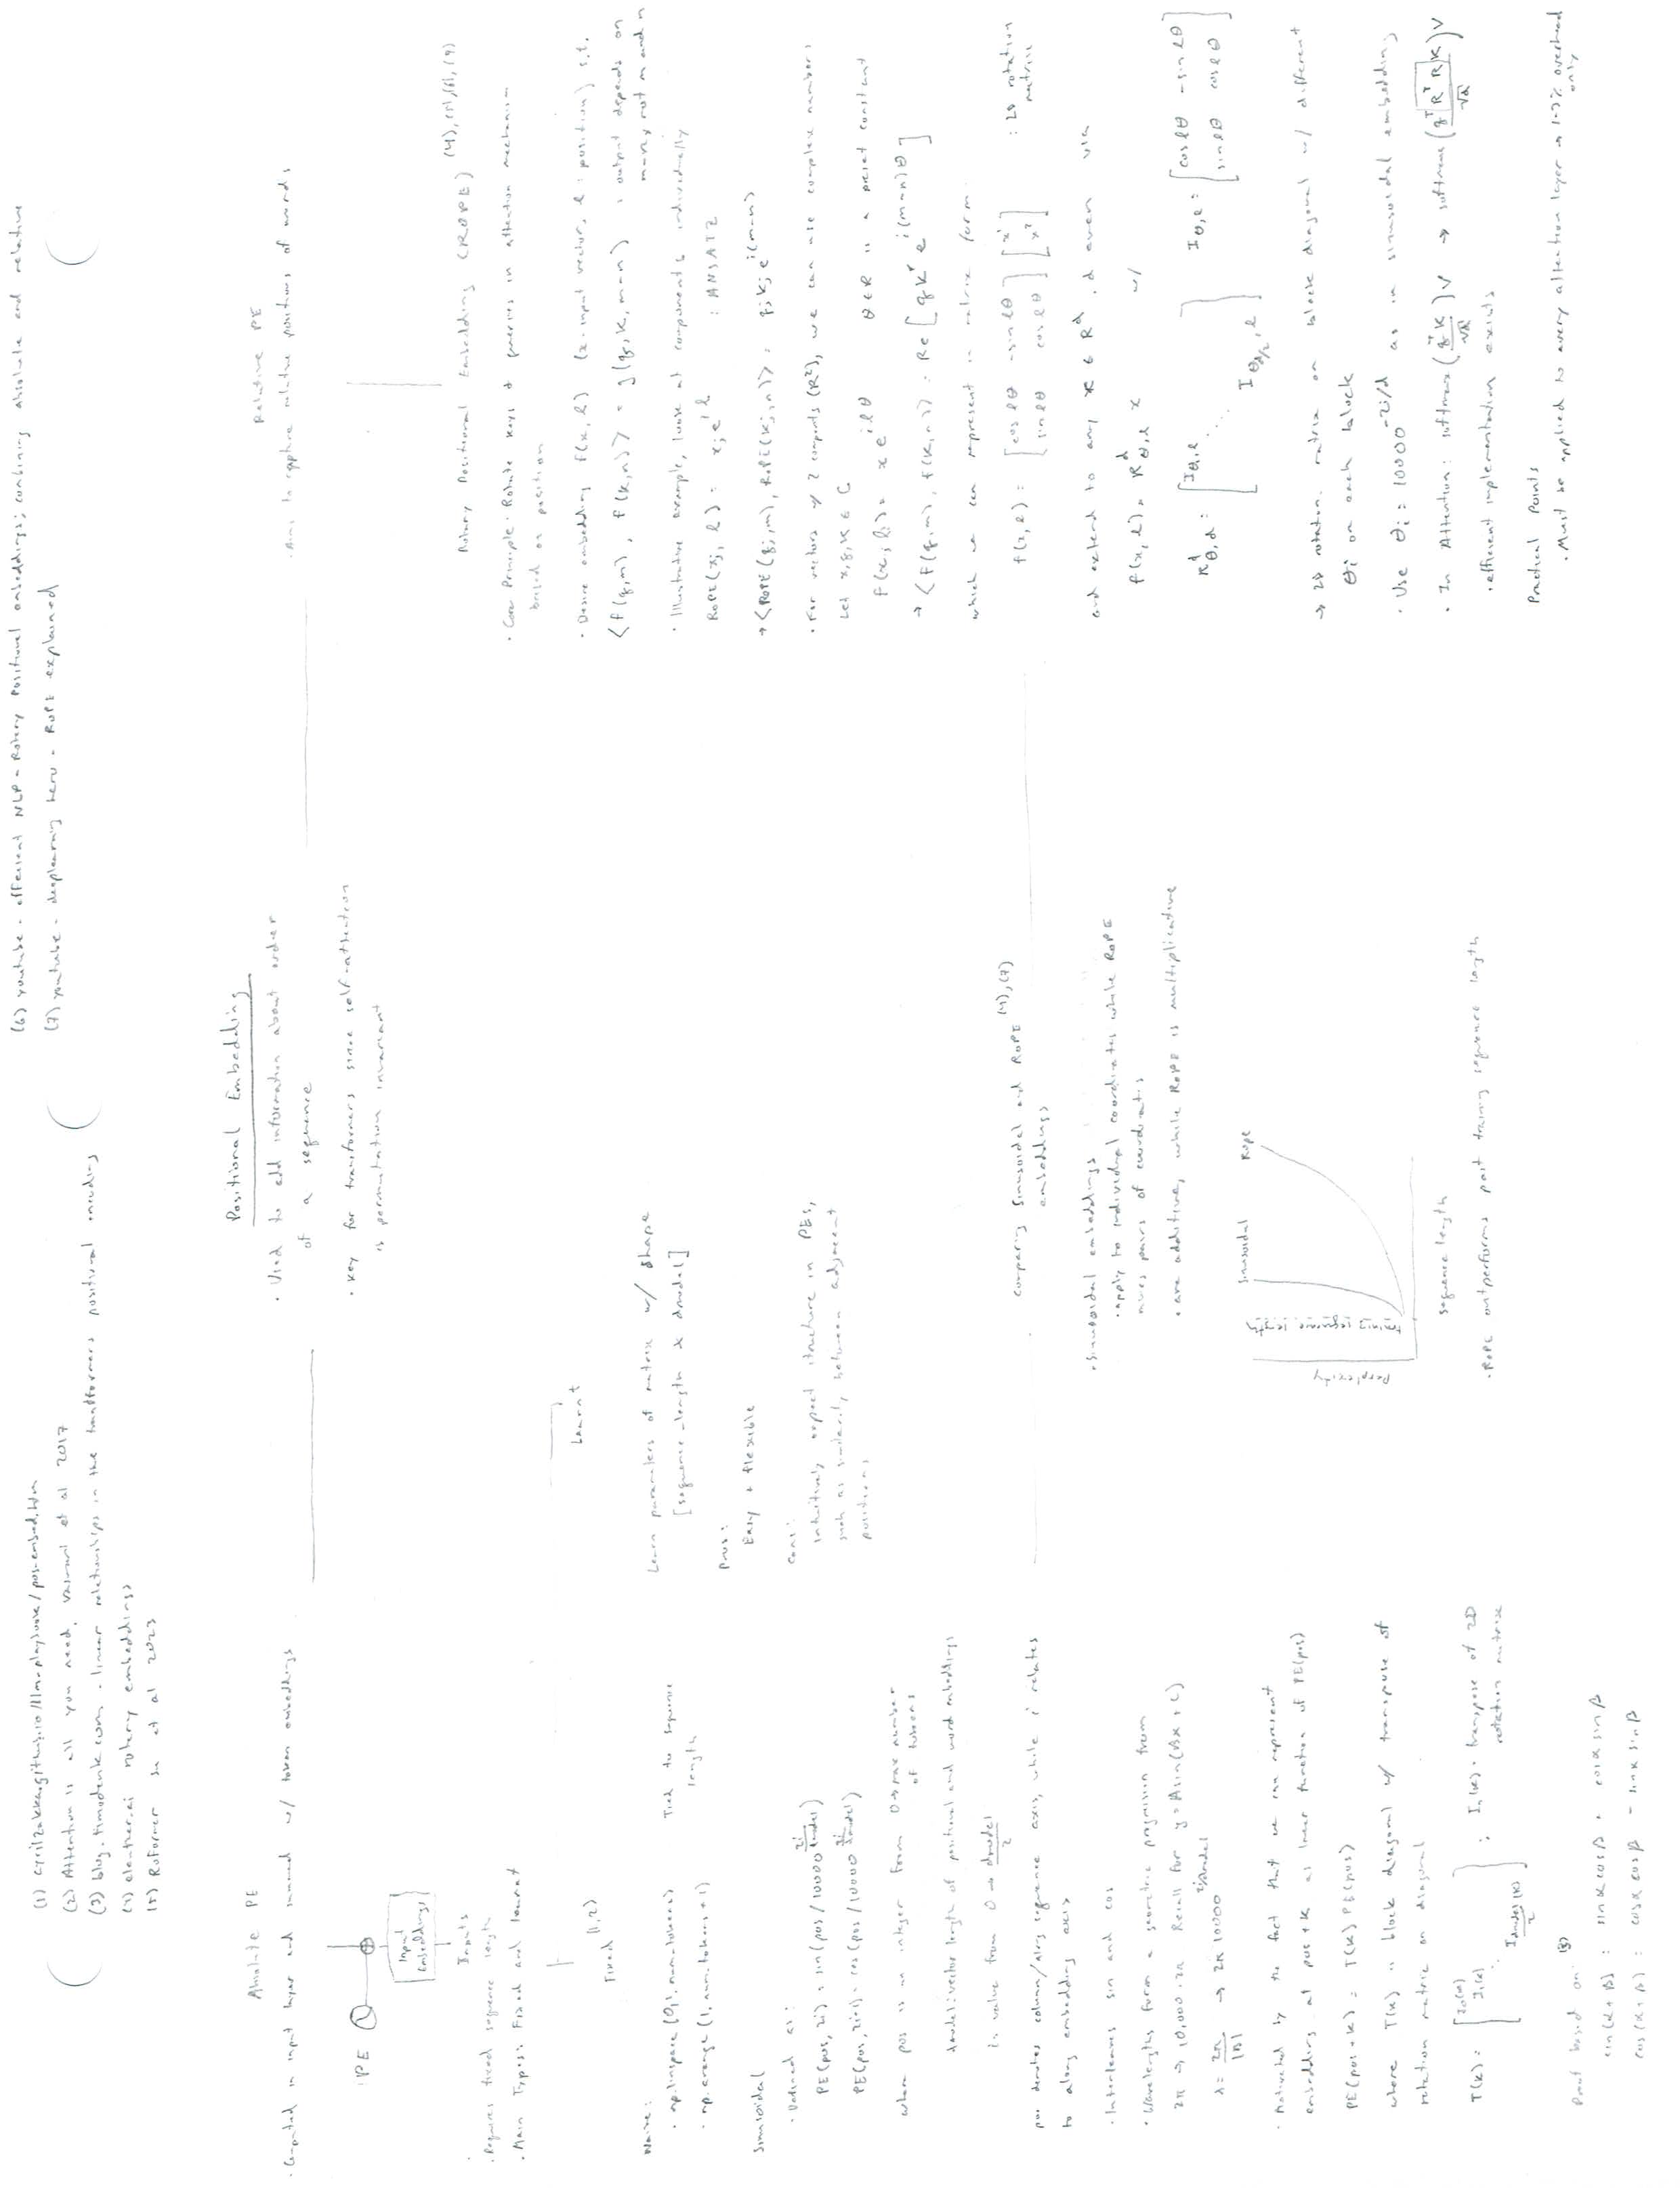 (1) cyrilzakka.github.io/llm-playbook/pos-embed.htm
(2) Attention is all you need, Vaswani et al 2017
(3) blog.timodenk.com - linear relationships in the transformers positional encoding
(4) eleuther.ai rotary embeddings
(5) Roformer Su et al 2023
(6) youtube - efficient NLP - Rotary Positional embeddings; combining absolute and relative
(7) youtube - deeplearning hero - RoPE explained
Positional Embedding
• Used to add information about order
of a sequence
• Key for transformers since self-attention
is permutation invariant
Absolute PE
• Computed in input layer and summed w/ token embeddings
PE
Input
Embeddings
Inputs
• Requires fixed sequence length
• Main Types: Fixed and learnt
Fixed (1,2)
Naive:
• np.linspace(0,1,num-tokens)
• np.arange(1, num.tokens + 1)
Tied to sequence
length
Sinusoidal
• Defined as:
PE(pos, 2i) = sin(pos / 10000^(2i/dmodel))
PE(pos, 2i+1) = cos(pos / 10000^(2i/dmodel))
where pos is an integer from 0 → max number
of tokens
dmodel: vector length of positional and word embeddings
i: value from 0 → dmodel/2
pos denotes column/along sequence axis, while i relates
to along embedding axis
• Interleaves sin and cos
• Wavelengths form a geometric progression from
2π → 10,000 · 2π Recall for y = Asin(Bx + C)
λ = 2π/|B| → 2π 10000^(2i/dmodel)
• Motivated by the fact that we can represent
embedding at pos + k as linear function of PE(pos)
PE(pos + k) = T(k) PE(pos)
where T(k) is block diagonal w/ transpose of
rotation matrix on diagonal
T(k) = [I₀(k) I₁(k) ⋱ I_dmodel/2 (k)] ; Iₙ(k) · transpose of 2D
rotation matrix
Proof based on: (3)
sin(α + β) = sin α cos β + cos α sin β
cos(α + β) = cos α cos β - sin α sin β
Learnt
Learn parameters of matrix w/ shape
[sequence-length x dmodel]
Pros:
Easy + flexible
Cons:
intuitively expect structure in PEs,
such as similarity between adjacent
positions
Comparing Sinusoidal and RoPE (4),(7)
embeddings
• Sinusoidal embeddings
• apply to individual coordinates while RoPE
mixes pairs of coordinates
• are additive, while RoPE is multiplicative
Sinusoidal
Rope
training sequence length
Perplexity
sequence length
• RoPE outperforms past training sequence length
Relative PE
• Aims to capture relative positions of words
Rotary Positional Embedding (ROPE) (4),(5),(6),(7)
• Core Principle: Rotate keys & queries in attention mechanism
based on position
• Desire embedding f(x, l) (x: input vector, l: position) s.t.
⟨f(q,m), f(k,n)⟩ = g(q, k, m-n) : output depends on
m-n, not m and n
• Illustrative example, look at components individually
RoPE(xj, l) = xj e^(il) : ANSATZ
→ ⟨RoPE(qj,m), RoPE(kj,n)⟩ = qj kj e^(i(m-n))
• For vectors w/ 2 components (R²), we can use complex numbers
Let x,q,k ∈ C
f(x, l) = x e^(ilθ) θ ∈ R is a preset constant
→ ⟨f(q,m), f(k,n)⟩ = Re[qk* e^(i(m-n)θ)]
which we can represent in matrix form
f(x, l) = [cos lθ -sin lθ; sin lθ cos lθ] [x¹; x²] : 2D rotation
matrix
and extend to any x ∈ R^d, d even via
f(x, l) = R^d_θ,l x w/
R^d_θ,d = [I_θ₁,l ⋱ I_θd/2, l] I_θ,l = [cos lθ -sin lθ; sin lθ cos lθ]
→ 2D rotation matrix on block diagonal w/ different
θi on each block
• Use θi = 10000^(-2i/d) as in sinusoidal embedding
• In Attention: softmax(qᵀk/√d)V → softmax(qᵀRᵀRk/√d)V
• efficient implementation exists
Practical Points
• Must be applied to every attention layer → 1-3% overhead
only